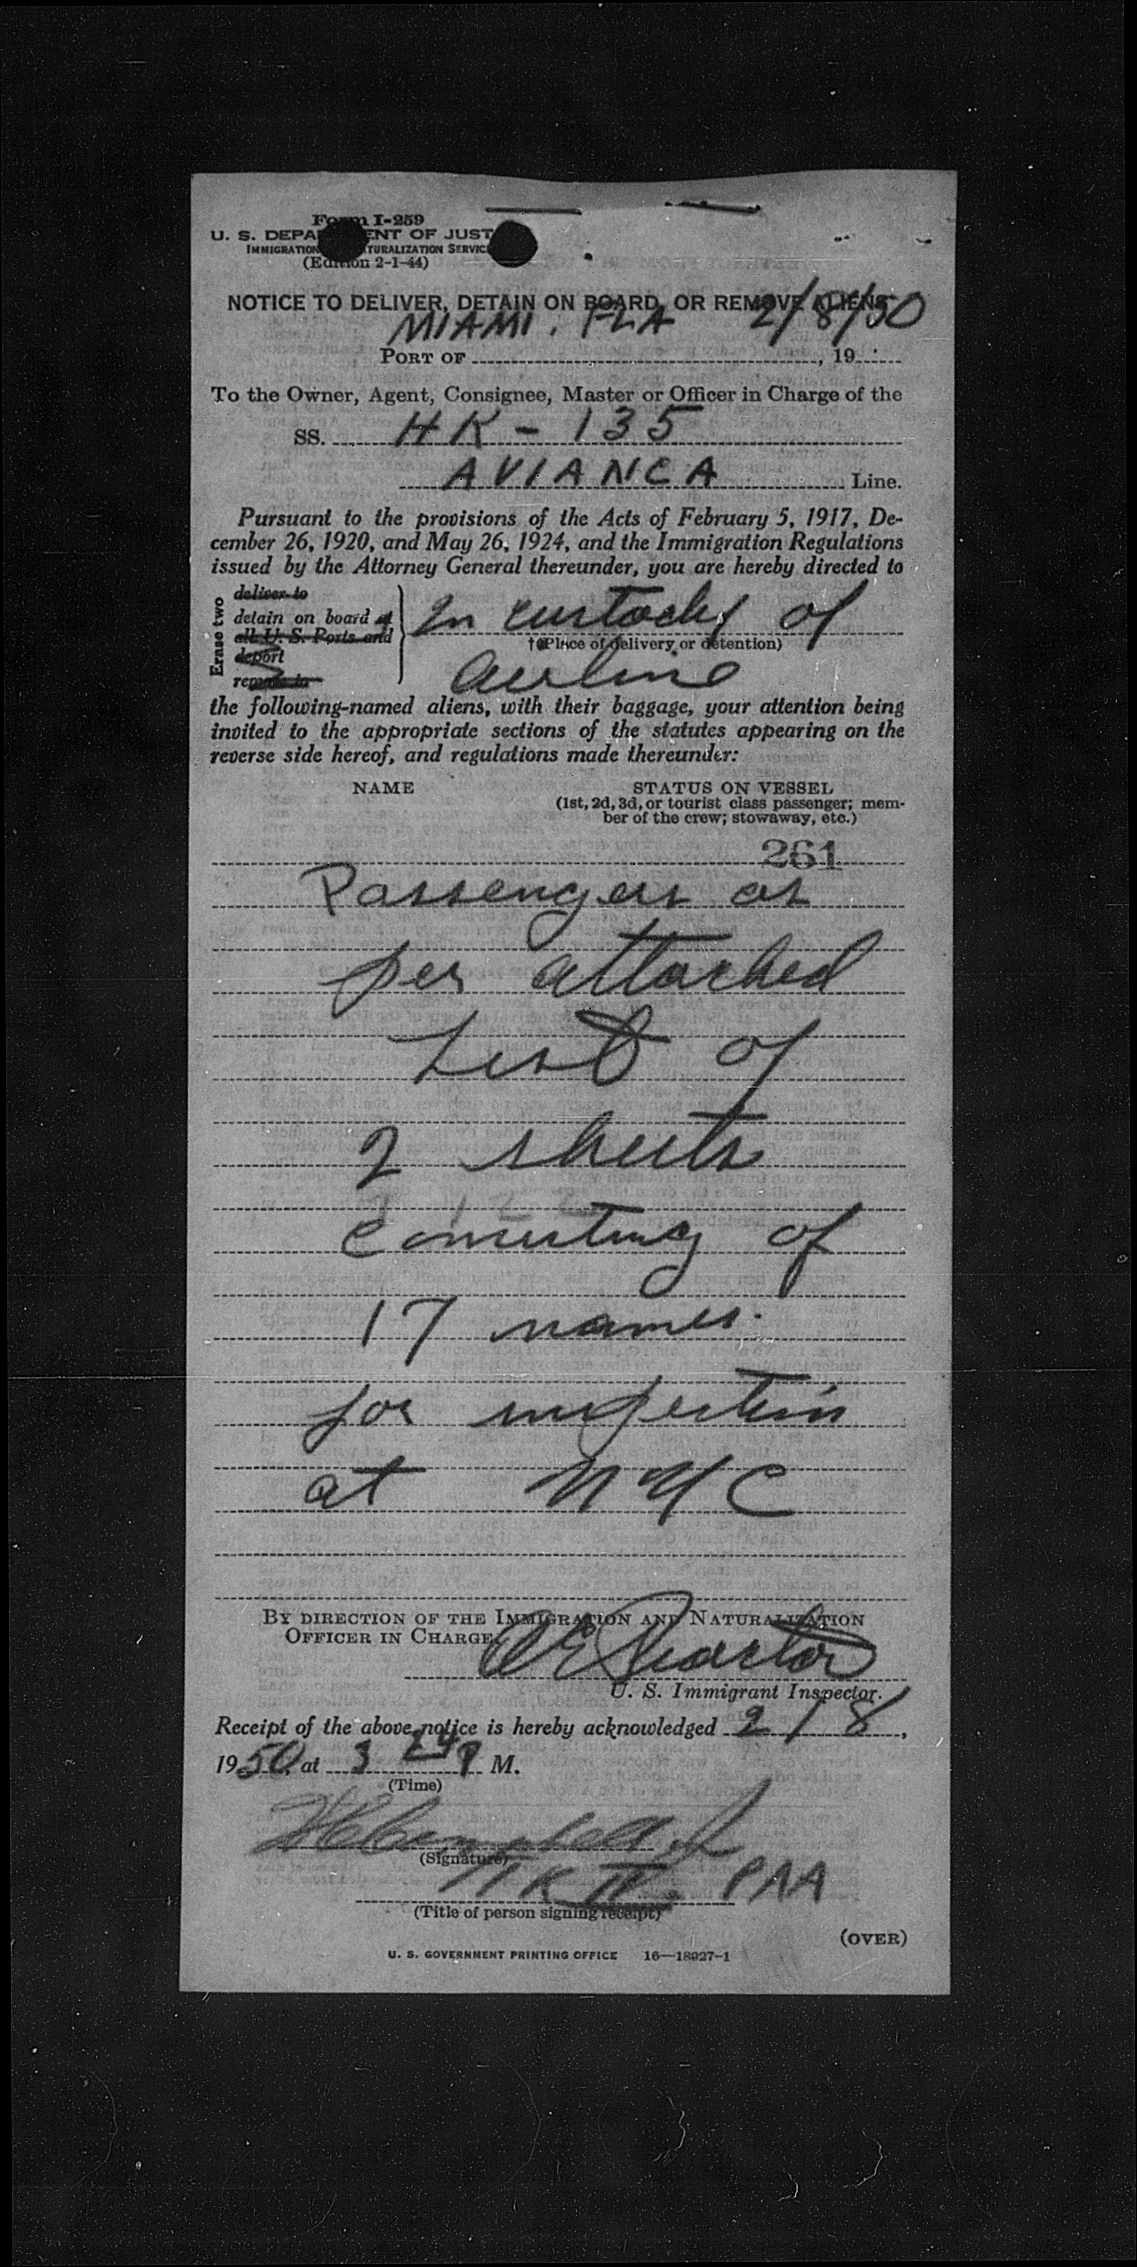 Form I-259
U. S. DEPARTMENT OF JUST
IMMIGRATION NATURALIZATION SERVICE
(Edition 2-1-44)
NOTICE TO DELIVER, DETAIN ON BOARD, OR REMOVE ALIENS
MIAMI. FLA 2/8/50
PORT OF , 19
To the Owner, Agent, Consignee, Master or Officer in Charge of the
SS. HK-135
AVIANCA Line.
Pursuant to the provisions of the Acts of February 5, 1917, De-
cember 26, 1920, and May 26, 1924, and the Immigration Regulations
issued by the Attorney General thereunder, you are hereby directed to
Erase two
deliver to
detain on board at
all U. S. Ports and
deport
remove to
In custody of
†(Place of delivery or detention)
airline
the following-named aliens, with their baggage, your attention being
invited to the appropriate sections of the statutes appearing on the
reverse side hereof, and regulations made thereunder:
NAME STATUS ON VESSEL
(1st, 2d, 3d, or tourist class passenger; mem-
ber of the crew; stowaway, etc.)
261
Passengers as
per attached
List of
2 sheets
consisting of
17 names.
for inspection
at NYC
BY DIRECTION OF THE IMMIGRATION AND NATURALIZATION
OFFICER IN CHARGE,
U. S. Immigrant Inspector.
Receipt of the above notice is hereby acknowledged 2/8,
1950, at 3 P M.
(Time)
Campbell Jr
(Signature)
PAA
(Title of person signing receipt)
(OVER)
U. S. GOVERNMENT PRINTING OFFICE 16—18927-1